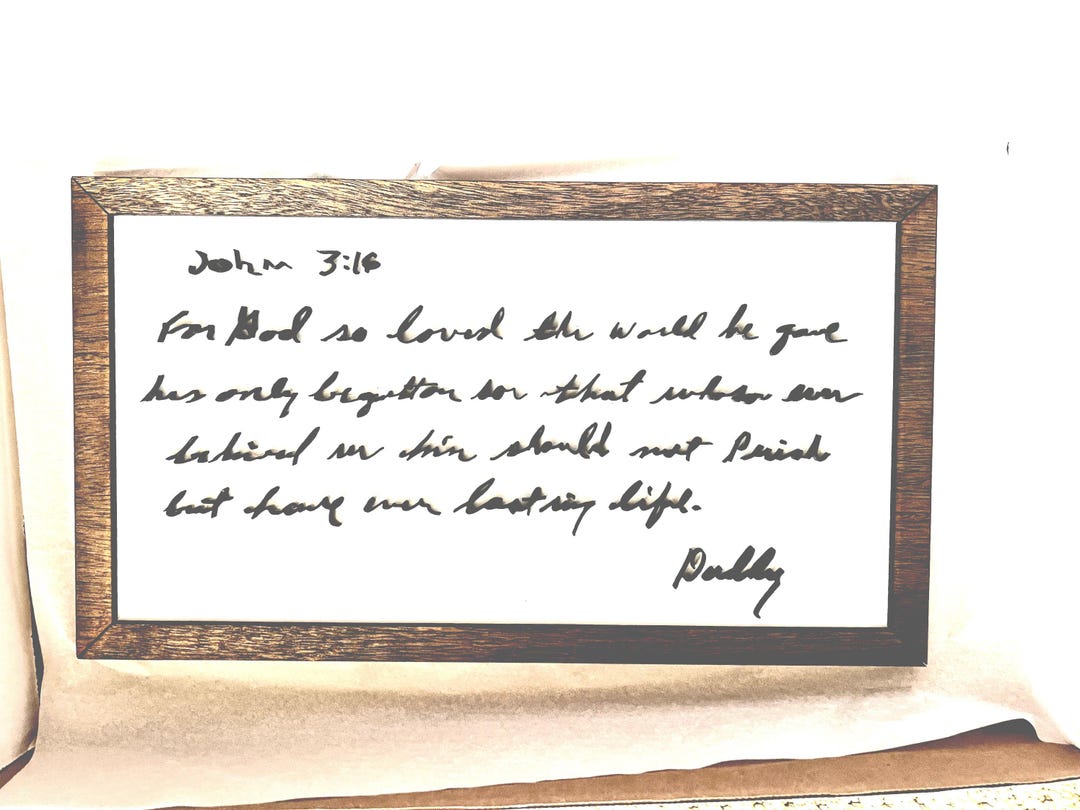 John 3:16
For God so loved the world he gave
his only begotton son that whoso ever
believed in him should not Perish
but have ever lasting life.
Daddy